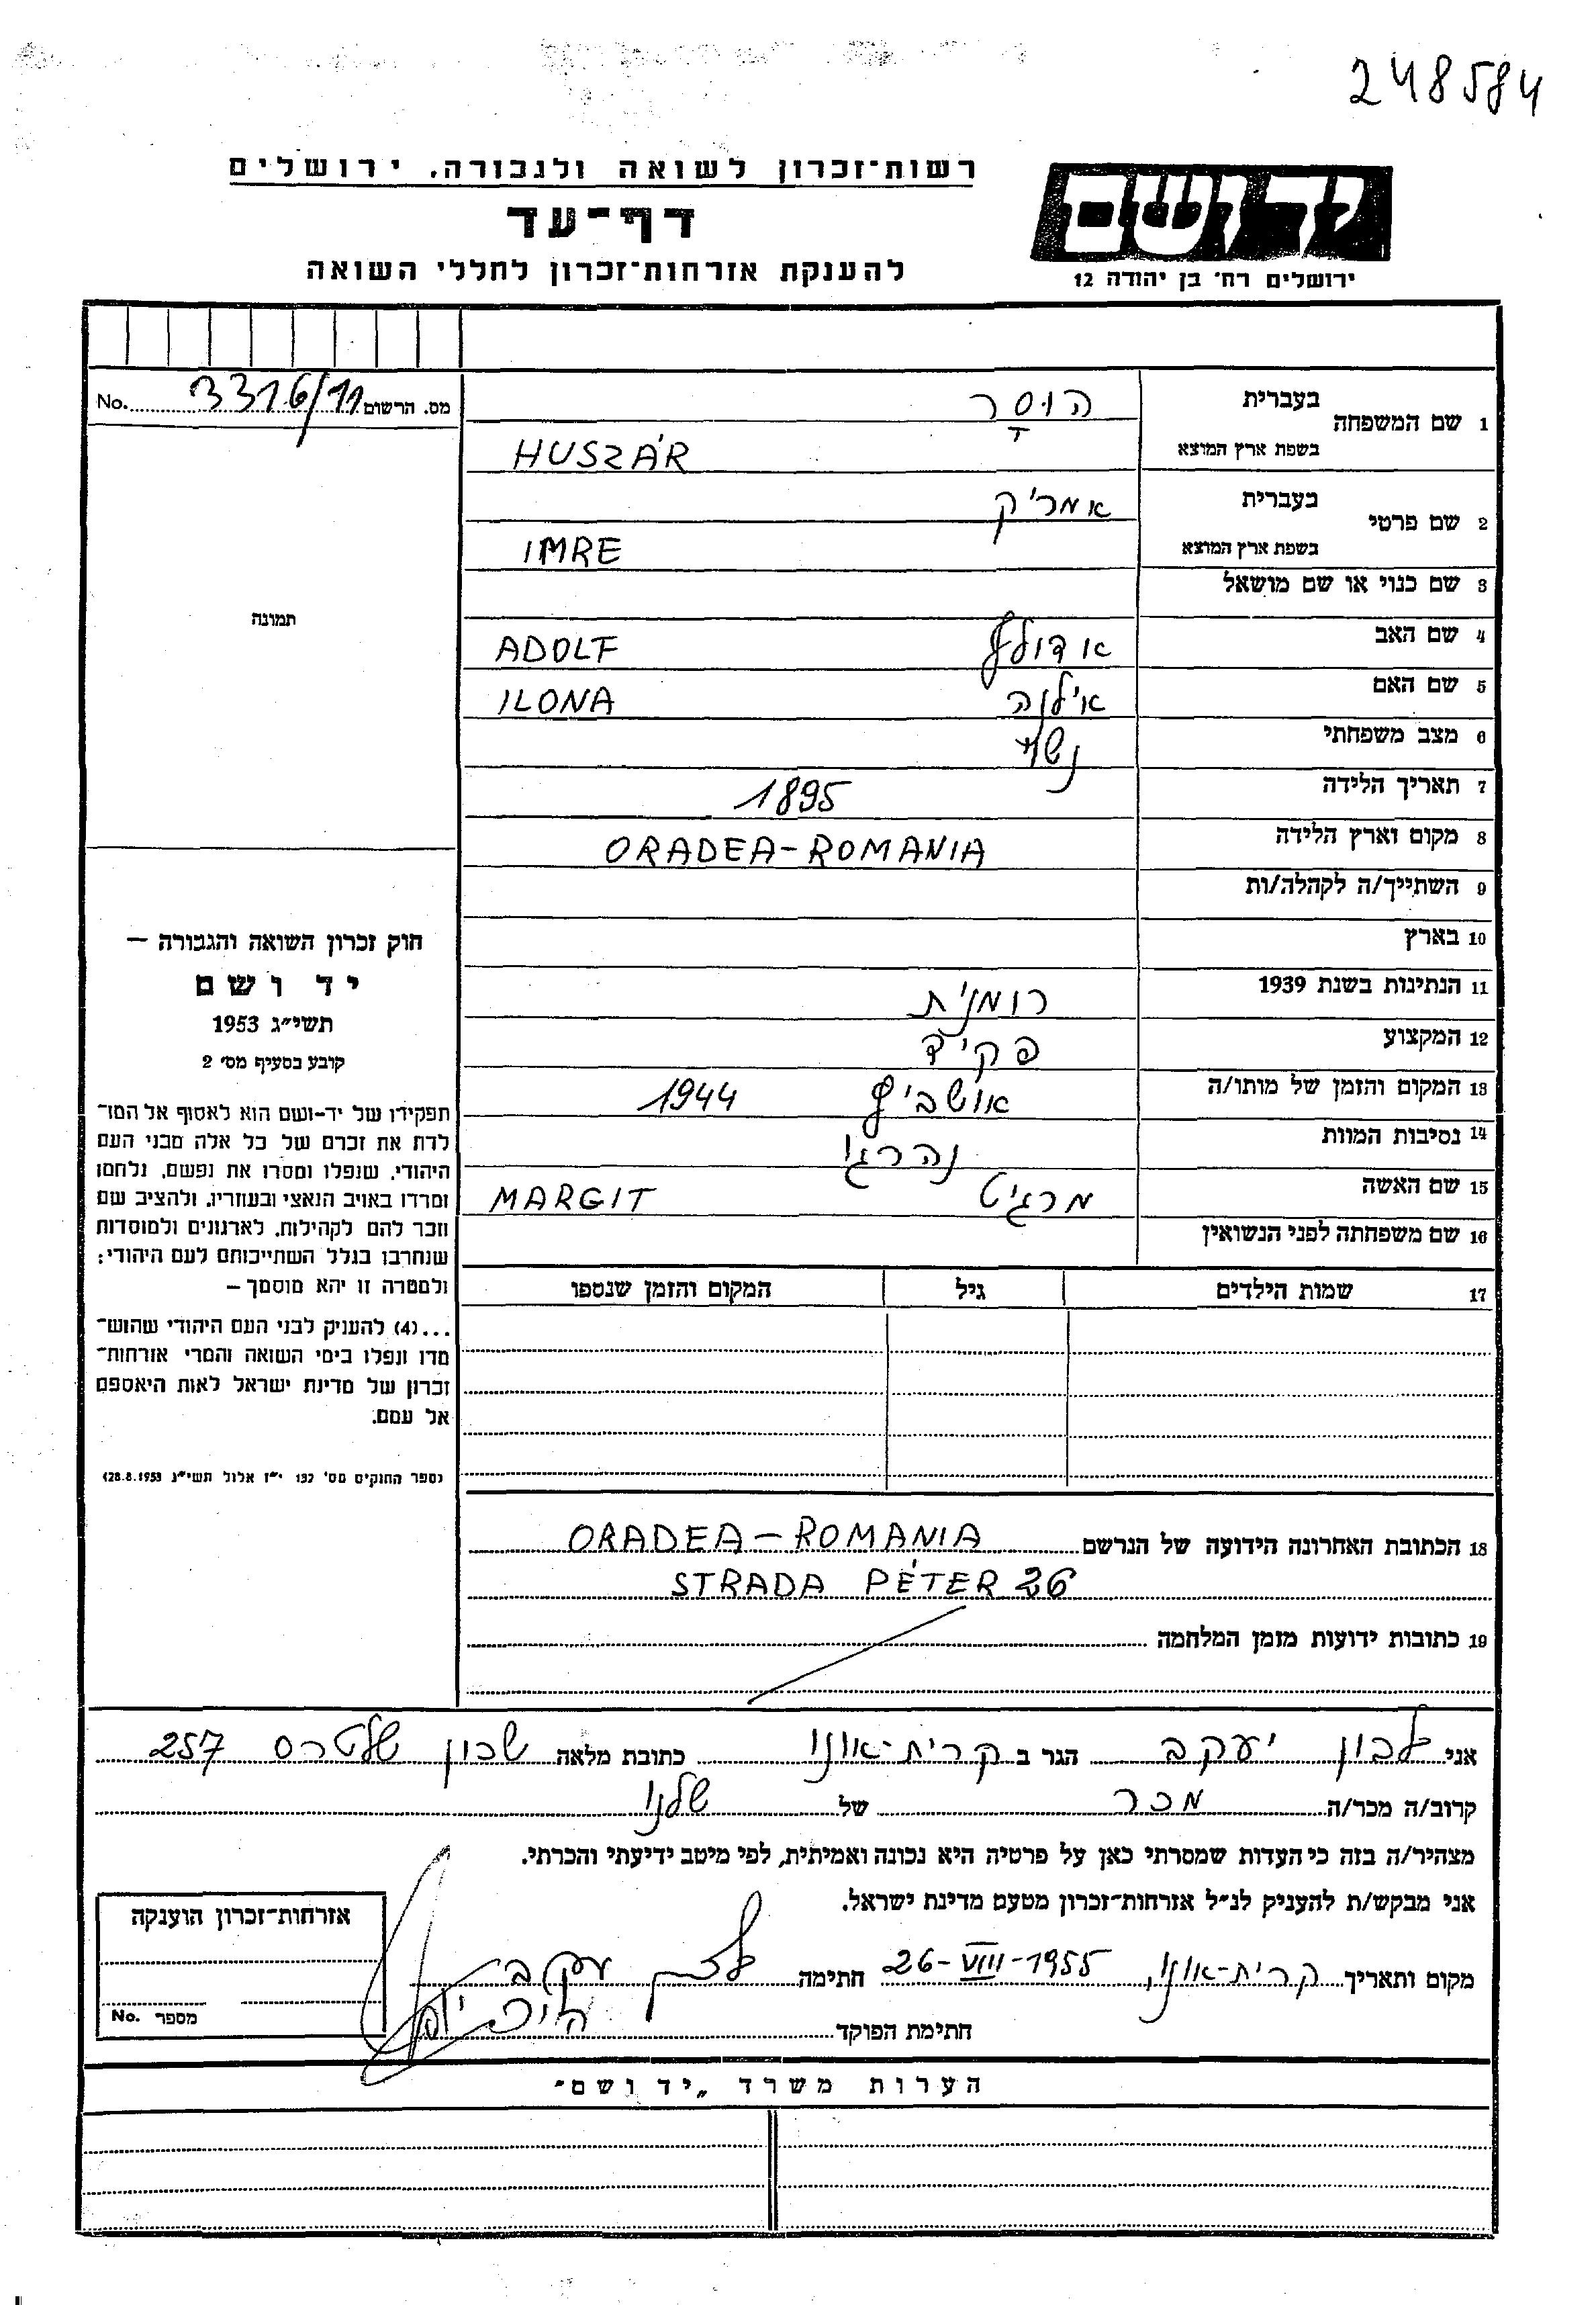 248584
רשות־זכרון לשואה ולגבורה, ירושלים
יד ושם
דף־עד
ירושלים רח' בן יהודה 12
להענקת אזרחות־זכרון לחללי השואה
No. 3316/11 מס. הרשום
1 שם המשפחה
בעברית הוסר
בשפת ארץ המוצא HUSZÁR
2 שם פרטי
בעברית אמריק
בשפת ארץ המוצא IMRE
3 שם כנוי או שם מושאל
4 שם האב אדולף ADOLF
5 שם האם אילנה ILONA
6 מצב משפחתי נשוי
7 תאריך הלידה 1895
8 מקום וארץ הלידה ORADEA-ROMANIA
9 השתייך/ה לקהלה/ות
10 בארץ
11 הנתינות בשנת 1939 רומנית
12 המקצוע פקיד
13 המקום והזמן של מותו/ה אושביץ 1944
14 נסיבות המוות נהרג
15 שם האשה מרגיט MARGIT
16 שם משפחתה לפני הנשואין
17 שמות הילדים גיל המקום והזמן שנספו
תמונה
חוק זכרון השואה והגבורה –
יד ושם
תשי״ג 1953
קובע בסעיף מס' 2
תפקידו של יד-ושם הוא לאסוף אל המו־
לדת את זכרם של כל אלה מבני העם
היהודי, שנפלו ומסרו את נפשם, נלחמו
ומרדו באויב הנאצי ובעוזריו, ולהציב שם
וזכר להם לקהילות, לארגונים ולמוסדות
שנחרבו בגלל השתייכותם לעם היהודי;
ולמטרה זו יהא מוסמך –
...(4) להעניק לבני העם היהודי שהוש־
מדו ונפלו בימי השואה והמרי אזרחות־
זכרון של מדינת ישראל לאות היאספם
אל עמם.
(ספר החוקים מס' 132 י״ז אלול תשי״ג 28.8.1953)
18 הכתובת האחרונה הידועה של הנרשם ORADEA-ROMANIA
STRADA PÉTER 26
19 כתובות ידועות מזמן המלחמה
אני לבון יעקב הגר ב קרית-אונו כתובת מלאה שכון שלטרס 257
קרוב/ה מכר/ה מכר של שלנו
מצהיר/ה בזה כי העדות שמסרתי כאן על פרטיה היא נכונה ואמיתית, לפי מיטב ידיעתי והכרתי.
אני מבקש/ת להעניק לנ״ל אזרחות־זכרון מטעם מדינת ישראל.
מקום ותאריך קרית-אונו, 26-VIII-1955 חתימה לבון יעקב
חתימת הפוקד
אזרחות־זכרון הוענקה
מספר No.
הערות משרד „יד ושם״